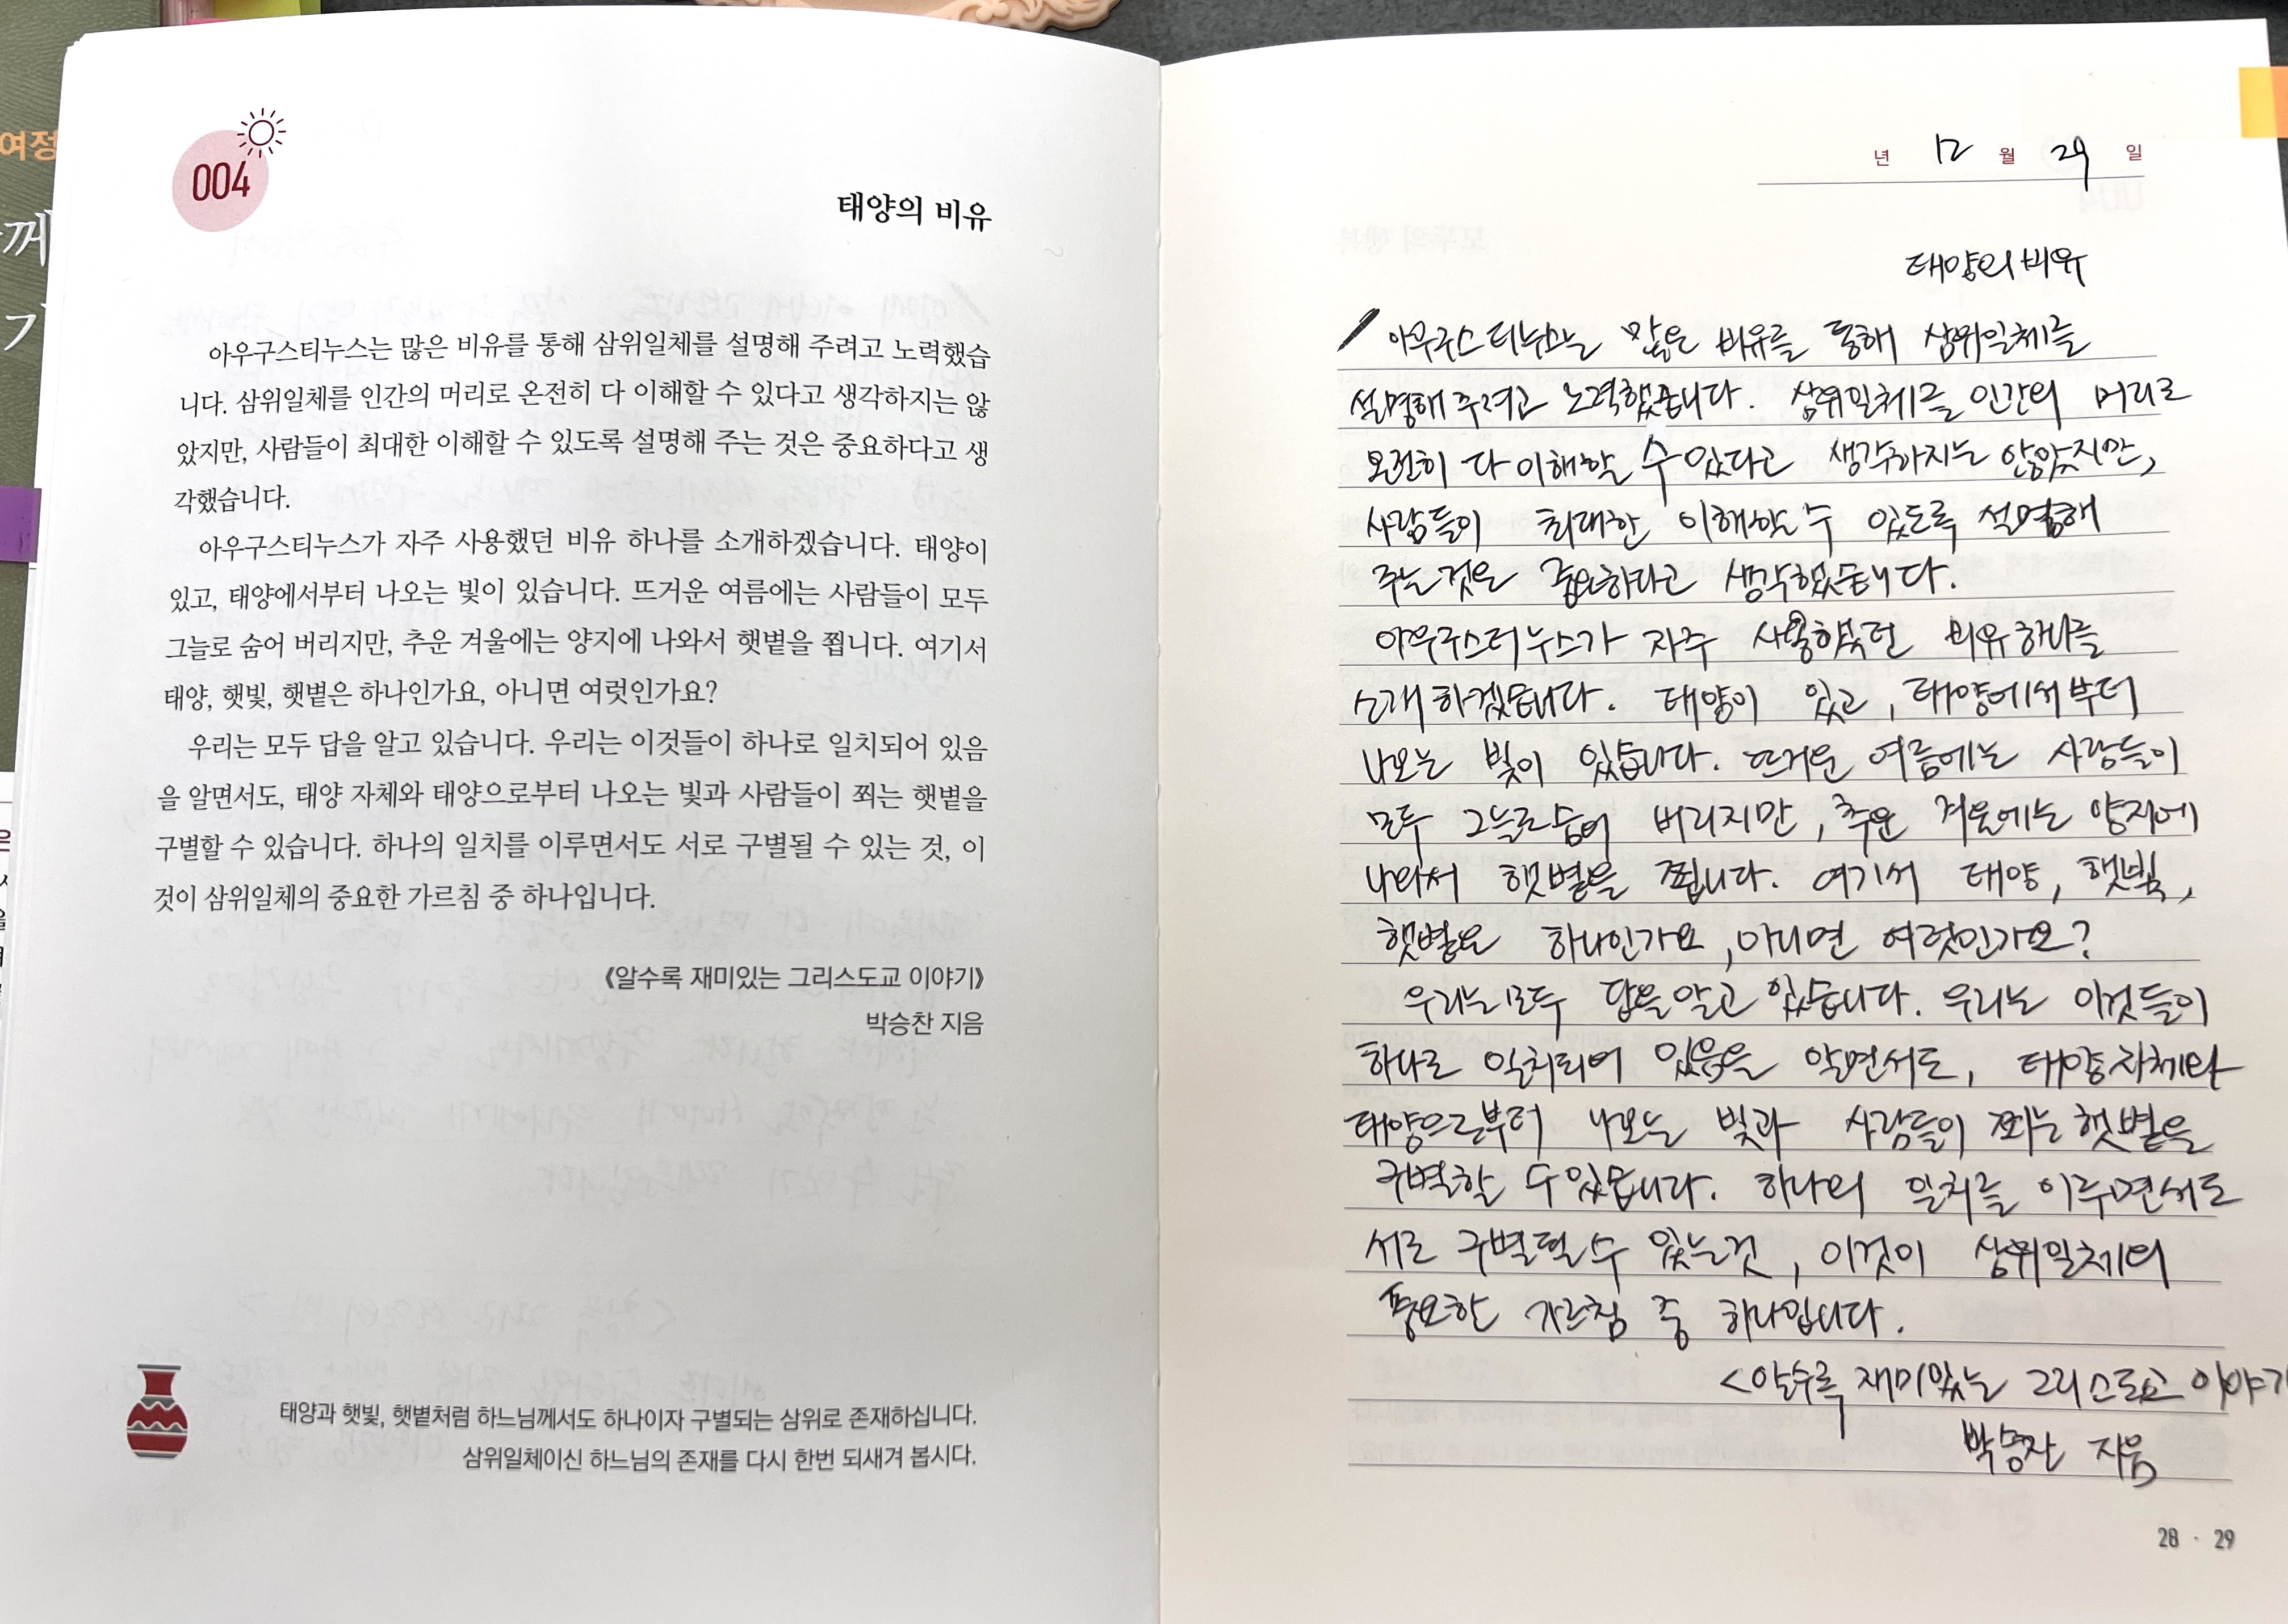 여정
께
가
004
태양의 비유
아우구스티누스는 많은 비유를 통해 삼위일체를 설명해 주려고 노력했습
니다. 삼위일체를 인간의 머리로 온전히 다 이해할 수 있다고 생각하지는 않
았지만, 사람들이 최대한 이해할 수 있도록 설명해 주는 것은 중요하다고 생
각했습니다.
아우구스티누스가 자주 사용했던 비유 하나를 소개하겠습니다. 태양이
있고, 태양에서부터 나오는 빛이 있습니다. 뜨거운 여름에는 사람들이 모두
그늘로 숨어 버리지만, 추운 겨울에는 양지에 나와서 햇볕을 쬡니다. 여기서
태양, 햇빛, 햇볕은 하나인가요, 아니면 여럿인가요?
우리는 모두 답을 알고 있습니다. 우리는 이것들이 하나로 일치되어 있음
을 알면서도, 태양 자체와 태양으로부터 나오는 빛과 사람들이 쬐는 햇볕을
구별할 수 있습니다. 하나의 일치를 이루면서도 서로 구별될 수 있는 것, 이
것이 삼위일체의 중요한 가르침 중 하나입니다.
《알수록 재미있는 그리스도교 이야기》
박승찬 지음
태양과 햇빛, 햇볕처럼 하느님께서도 하나이자 구별되는 삼위로 존재하십니다.
삼위일체이신 하느님의 존재를 다시 한번 되새겨 봅시다.
년 12 월 29 일
태양의 비유
아우구스티누스는 많은 비유를 통해 삼위일체를
설명해 주려고 노력했습니다. 삼위일체를 인간의 머리로
온전히 다 이해할 수 있다고 생각하지는 않았지만,
사람들이 최대한 이해할 수 있도록 설명해
주는 것은 중요하다고 생각했습니다.
아우구스티누스가 자주 사용했던 비유 하나를
소개하겠습니다. 태양이 있고, 태양에서부터
나오는 빛이 있습니다. 뜨거운 여름에는 사람들이
모두 그늘로 숨어 버리지만, 추운 겨울에는 양지에
나와서 햇볕을 쬡니다. 여기서 태양, 햇빛,
햇볕은 하나인가요, 아니면 여럿인가요?
우리는 모두 답을 알고 있습니다. 우리는 이것들이
하나로 일치되어 있음을 알면서도, 태양 자체와
태양으로부터 나오는 빛과 사람들이 쬐는 햇볕을
구별할 수 있습니다. 하나의 일치를 이루면서도
서로 구별될 수 있는 것, 이것이 삼위일체의
중요한 가르침 중 하나입니다.
<알수록 재미있는 그리스도교 이야기
박승찬 지음
28 · 29